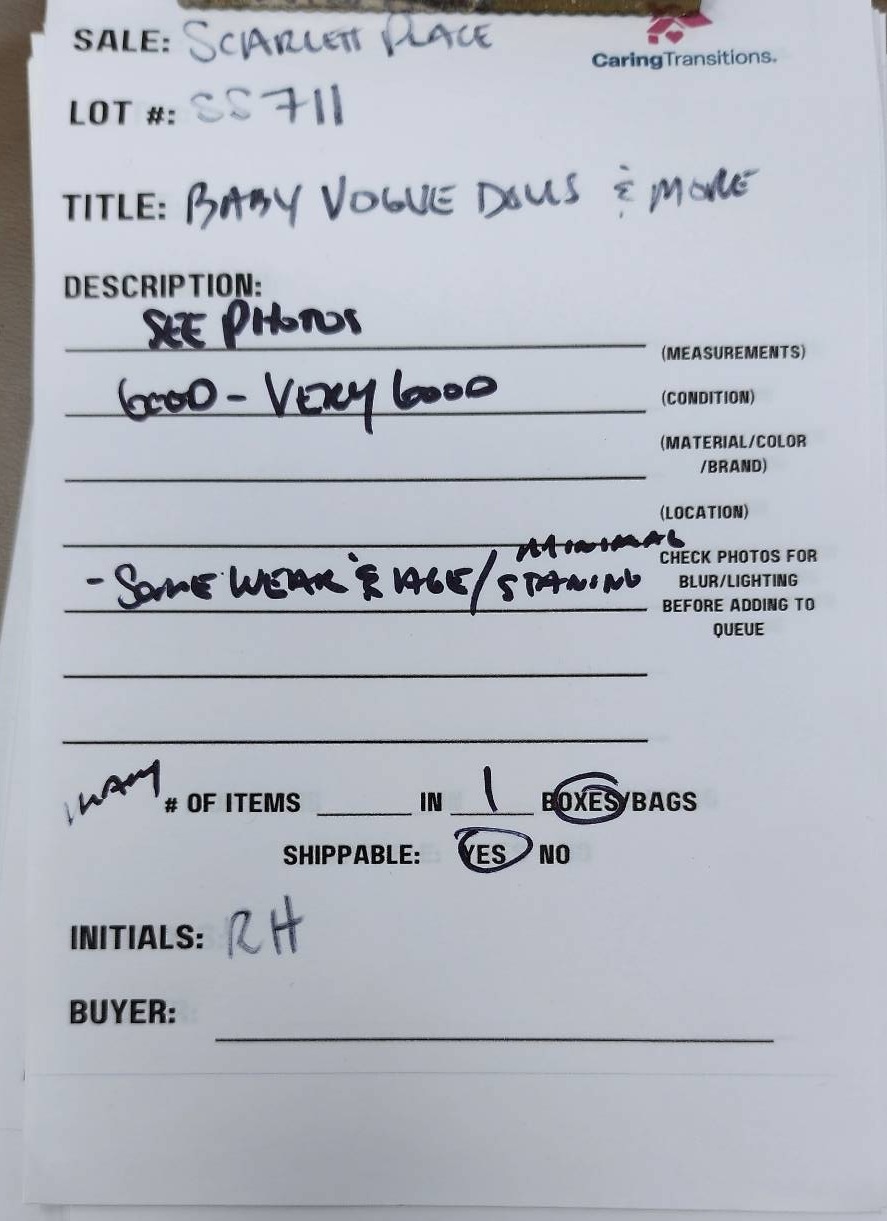 SALE: SCARLETT PLACE
CaringTransitions.
LOT #: SS711
TITLE: BABY VOGUE DOLLS & MORE
DESCRIPTION:
SEE PHOTOS
(MEASUREMENTS)
GOOD - VERY GOOD
(CONDITION)
(MATERIAL/COLOR
/BRAND)
(LOCATION)
MINIMAL
- SOME WEAR & AGE/STANING
CHECK PHOTOS FOR
BLUR/LIGHTING
BEFORE ADDING TO
QUEUE
MANY # OF ITEMS ______ IN 1 BOXES/BAGS
SHIPPABLE: YES NO
INITIALS: RH
BUYER: